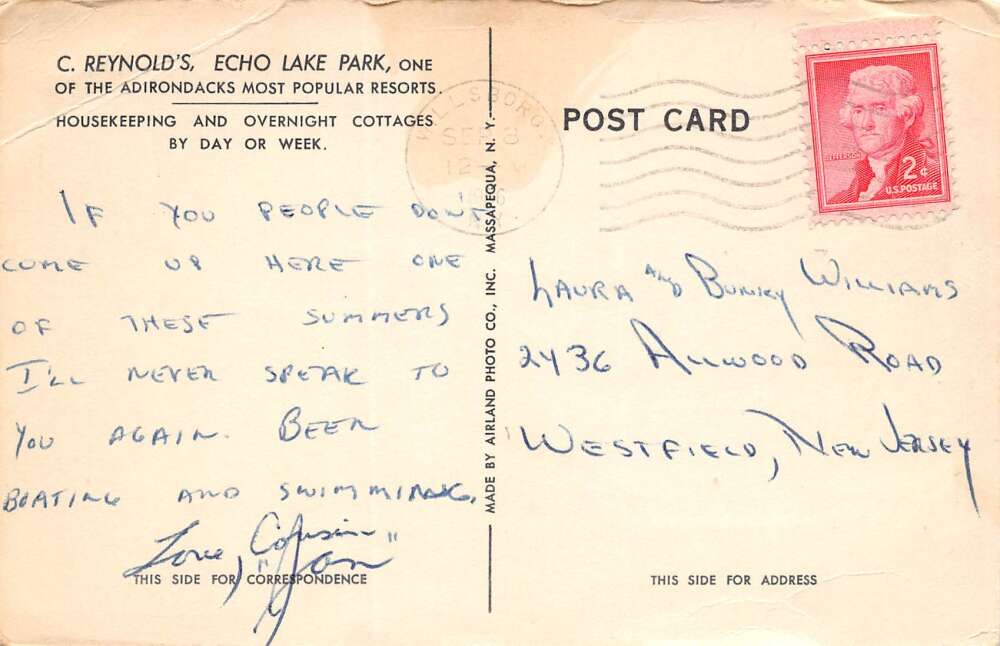 C. REYNOLD'S, ECHO LAKE PARK, ONE
OF THE ADIRONDACKS MOST POPULAR RESORTS.
HOUSEKEEPING AND OVERNIGHT COTTAGES
BY DAY OR WEEK.
IF YOU PEOPLE DON'T
COME UP HERE ONE
OF THESE SUMMERS
I'LL NEVER SPEAK TO
YOU AGAIN. BEEN
BOATING AND SWIMMING.
Love, Cousin
"Jan"
THIS SIDE FOR CORRESPONDENCE
MADE BY AIRLAND PHOTO CO., INC. MASSAPEQUA, N. Y.
WILLSBORO
SEP 8
12
POST CARD
JEFFERSON
2¢
U.S. POSTAGE
LAURA AND BUNKY WILLIAMS
2436 ALLWOOD ROAD
WESTFIELD, NEW JERSEY
THIS SIDE FOR ADDRESS